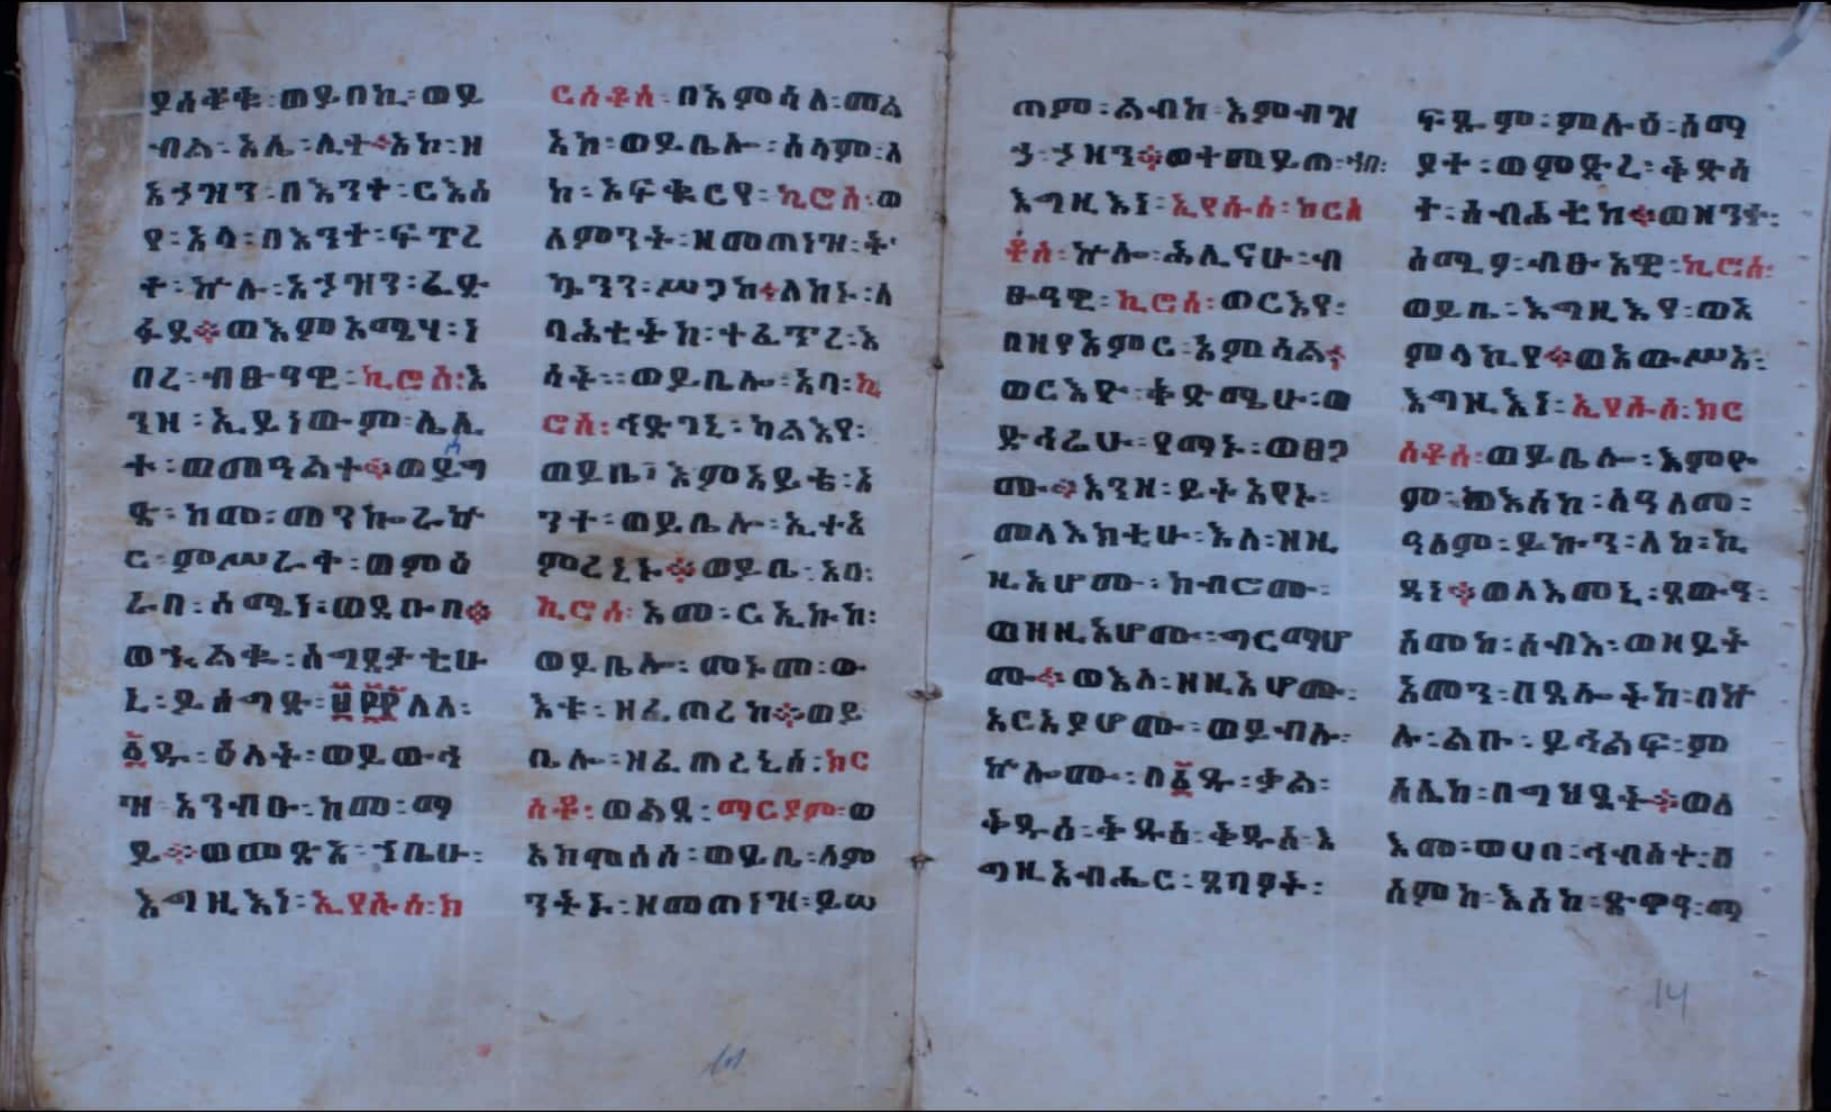 ያስቆቁ፡ወይበኪ፡ወይ
ብል፡እሌ፡ሊተ፨አኮ፡ዘ
እኃዝን፡በእንተ፡ርእስ
የ፡አላ፡በእንተ፡ፍጥረ
ተ፡ኵሉ፡እኃዝን፡ፈድ
ፋደ፨ወእምአሜሃ፡ነ
በረ፡ብፁዓዊ፡ኪሮስ፡እ
ንዘ፡ኢይነውም፡ሌሊ
ተ፡ወመዓልተ፨ወይግ
ዕር፡ከመ፡መንኰራኵ
ር፡ምሥራቅ፡ወምዕ
ራብ፡ሰሜነ፡ወደቡበ፨
ወኍልቁ፡ለግደታቲሁ
ኒ፡ይሰግድ፡፼፻፻ለለ፡
፩ዱ፡ዕለት፡ወይውኅ
ዝ፡አንብዑ፡ከመ፡ማ
ይ፨ወመጽአ፡ኀቤሁ፡
እግዚእነ፡ኢየሱስ፡ክ
ርስቶስ፡በአምሳለ፡መል
አክ፡ወይቤሎ፡ሰላም፡ለ
ከ፡አፍቁርየ፡ኪሮስ፡ወ
ለምንት፡ዘመጠነዝ፡ት
ኴንን፡ሥጋከ፨ለከኑ፡ለ
ባሕቲትከ፡ተፈጥረ፡እ
ሳት፡፡ወይቤሎ፡አባ፡ኪ
ሮስ፡ኅድገኒ፡ካልእየ፡
ወይቤ፡እምአይቴ፡አ
ንተ፡ወይቤሎ፡ኢተአ
ምረኒኑ፨ወይቤ፡አባ፡
ኪሮስ፡እመ፡ርኢኩከ፡
ወይቤሎ፡መኑመ፡ው
እቱ፡ዘፈጠረከ፨ወይ
ቤሎ፡ዘፈጠረኒሰ፡ክር
ስቶ፡ወልዳ፡ማርያም፡ወ
አክሞሰሰ፡ወይቤ፡ለም
ንትኑ፡ዘመጠነዝ፡ይሠ
ጠም፡ልብከ፡እምብዝ
ኃ፡ኃዘን፨ወተመይጠ፡ኀበ፡
እግዚእነ፡ኢየሱስ፡ክርስ
ቶስ፡ኵሎ፡ሕሊናሁ፡ብ
ፁዓዊ፡ኪሮስ፡ወርእየ፡
በዘየአምር፡አምሳል፨
ወርእዮ፡ቅድሜሁ፡ወ
ድኅሬሁ፡የማኑ፡ወፀጋ
ሙ፨እንዘ፡ይትአየኑ፡
መላእክቲሁ፡እለ፡ዘዚ
ዚአሆሙ፡ክብሮሙ፡
ወዘዚአሆሙ፡ግርማሆ
ሙ፨ወእለ፡ዘዚአሆሙ፡
አርአያሆሙ፡ወይብሉ፡
ኵሎሙ፡በ፩ዱ፡ቃል፡
ቅዱስ፡ቅዱስ፡ቅዱስ፡እ
ግዚአብሔር፡ጸባዖት፡
ፍጹም፡ምሉዕ፡ሰማ
ያተ፡ወምድረ፡ቅድሳ
ተ፡ስብሐቲከ፨ወዘንተ፡
ሰሚዖ፡ብፁአዊ፡ኪሮስ፡
ወይቤ፡እግዚእየ፡ወአ
ምላኪየ፨ወአውሥአ፡
እግዚእነ፡ኢየሱስ፡ክር
ስቶስ፡ወይቤሎ፡እምዮ
ም፡ወእስከ፡ለዓለመ፡
ዓለም፡ይኩን፡ለከ፡ኪ
ዳነ፨ወለእመኒ፡ጸውዓ፡
ስመከ፡ሰብእ፡ወዘይት
አመን፡በጸሎትከ፡በኵ
ሉ፡ልቡ፡ይኅልፍ፡ም
ስሌከ፡በግህደት፨ወለ
እመ፡ወሀበ፡ኅብስተ፡በ
ስምከ፡እስከ፡ጽዋዓ፡ማ
14